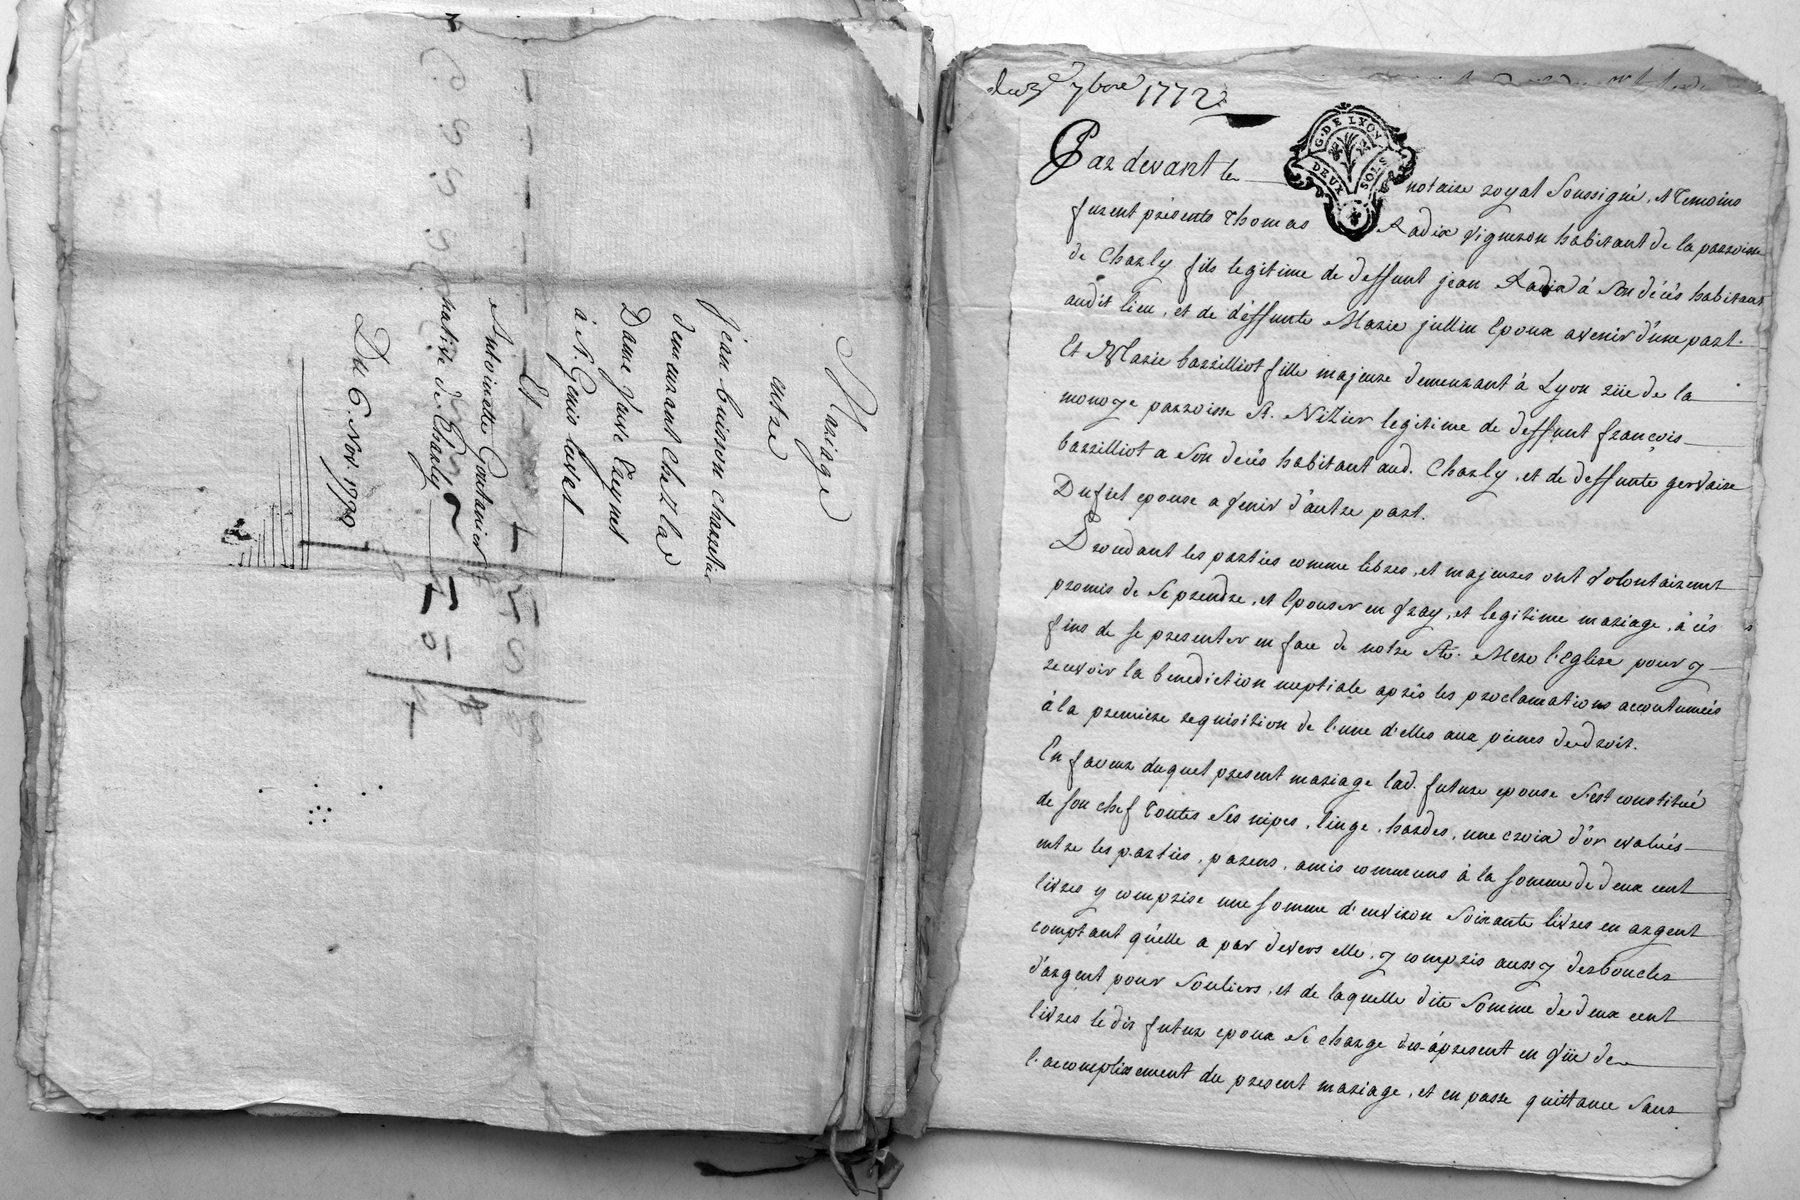 Mariage
entre
jean buisson charretier
demeurant chez la d
Dame Veuve Eeynet
à St. Genis laval
Et
Antoinette Goutanier
native de Charly
Du 6. Nov. 1790
du 3e 7bre 1772
G. DE LYON
DEUX SOLS
Pardevant le notaire royal soussigné, & temoins
furent présents thomas Radix vigneron habitant de la parroisse
de Charly fils legitime de deffunt jean Radix à son décés habitant
audit lieu, et de deffunte Marie jullin epoux avenir d'une part.
Et Marie barrilliot fille majeure demeurant à Lyon rüe de la
monoye parroisse st. Nizier legitime de deffunt françois
barrilliot a son decés habitant aud. Charly, et de deffunte gervaise
Dufiet epouse a venir d'autre part.
Procedant les parties comme libres, et majeures ont volontairemt
promis de se prendre, et epouser en vray, et legitime mariage, à cés
fins de se presenter en face de notre ste. Mere l'eglise pour y
recevoir la benediction nuptiale aprés les proclamations accoutumées
à la premiere requisition de l'une d'elles aux peines de droit.
En faveur duquel present mariage lad. future epouse s'est constitué
de son chef toutes ses nipes, linge, hardes, une croix d'or evalués
entre les parties, parens, amis communs à la somme de deux cent
livres y comprise une somme d'environ soixante livres en argent
comptant qu'elle a par devers elle, y compris aussy des boucles
d'argent pour souliers, et de laquelle dite somme de deux cent
livres le dit futur epoux se charge des-àpresent en vüe de
l'accomplissement du present mariage, et en passe quittance sans